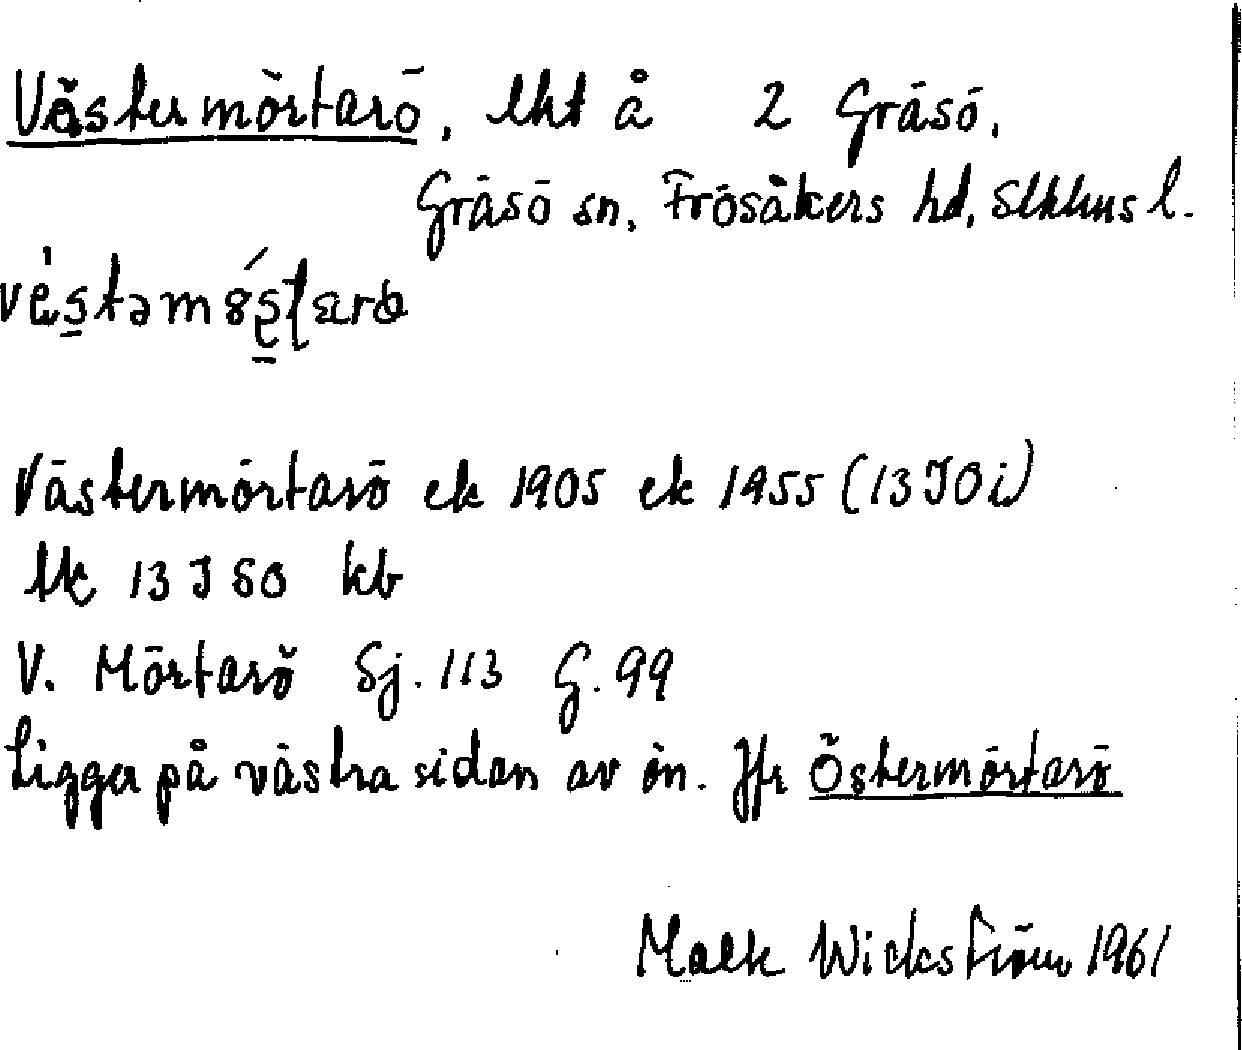 Västermörtarö, lht å 2 Gräsö,
Gräsö sn, Frösåkers hd, Sthlms l.
Västermörtarö ek 1905 ek 1955 (13 I 0 i)
13 I SO kb
V. Mörtarö Sj. 113 G. 99
Ligger på västra sidan av ön. Jfr Östermörtarö
Wickström 1961